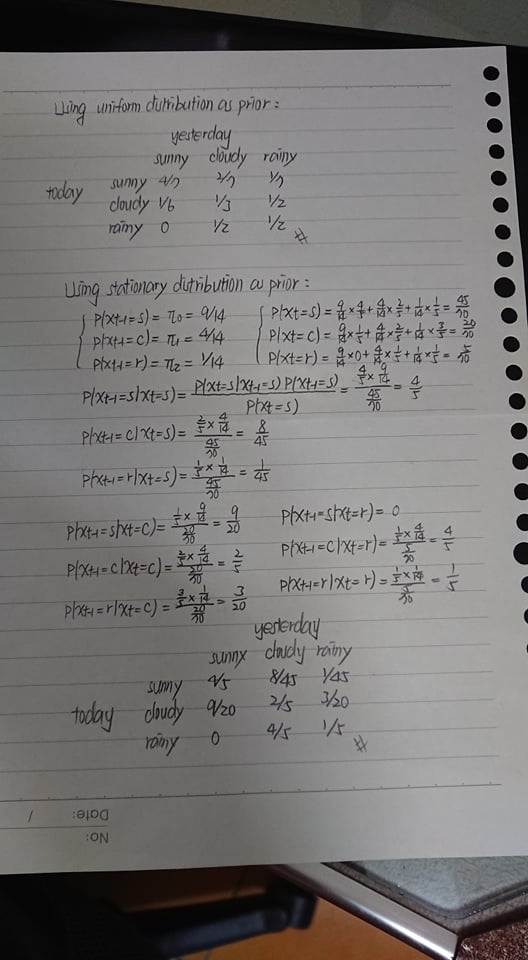 Using uniform dutribution as prior:
yesterday
sunny cloudy rainy
today sunny 4/7 2/7 1/7
cloudy 1/6 1/3 1/2
rainy 0 1/2 1/2 #
Using stationary dutribution as prior:
P(Xt-1=s) = π0 = 9/14
P(Xt-1=c) = π1 = 4/14
P(Xt-1=r) = π2 = 1/14
P(Xt=s) = 9/14 × 4/5 + 4/14 × 2/5 + 1/14 × 1/5 = 45/70
P(Xt=c) = 9/14 × 1/5 + 4/14 × 2/5 + 1/14 × 3/5 = 20/70
P(Xt=r) = 9/14 × 0 + 4/14 × 1/5 + 1/14 × 1/5 = 5/70
P(Xt-1=s|Xt=s) = P(Xt=s|Xt-1=s) P(Xt-1=s) / P(Xt=s) = 4/5 × 9/14 / 45/70 = 4/5
P(Xt-1=c|Xt=s) = 2/5 × 4/14 / 45/70 = 8/45
P(Xt-1=r|Xt=s) = 1/5 × 1/14 / 45/70 = 1/45
P(Xt-1=s|Xt=c) = 1/5 × 9/14 / 20/70 = 9/20
P(Xt-1=c|Xt=c) = 2/5 × 4/14 / 20/70 = 2/5
P(Xt-1=r|Xt=c) = 3/5 × 1/14 / 20/70 = 3/20
P(Xt-1=s|Xt=r) = 0
P(Xt-1=c|Xt=r) = 1/5 × 4/14 / 5/70 = 4/5
P(Xt-1=r|Xt=r) = 1/5 × 1/14 / 5/70 = 1/5
yesterday
sunny cloudy rainy
sunny 4/5 8/45 1/45
today cloudy 9/20 2/5 3/20
rainy 0 4/5 1/5 #
Date: /
No: